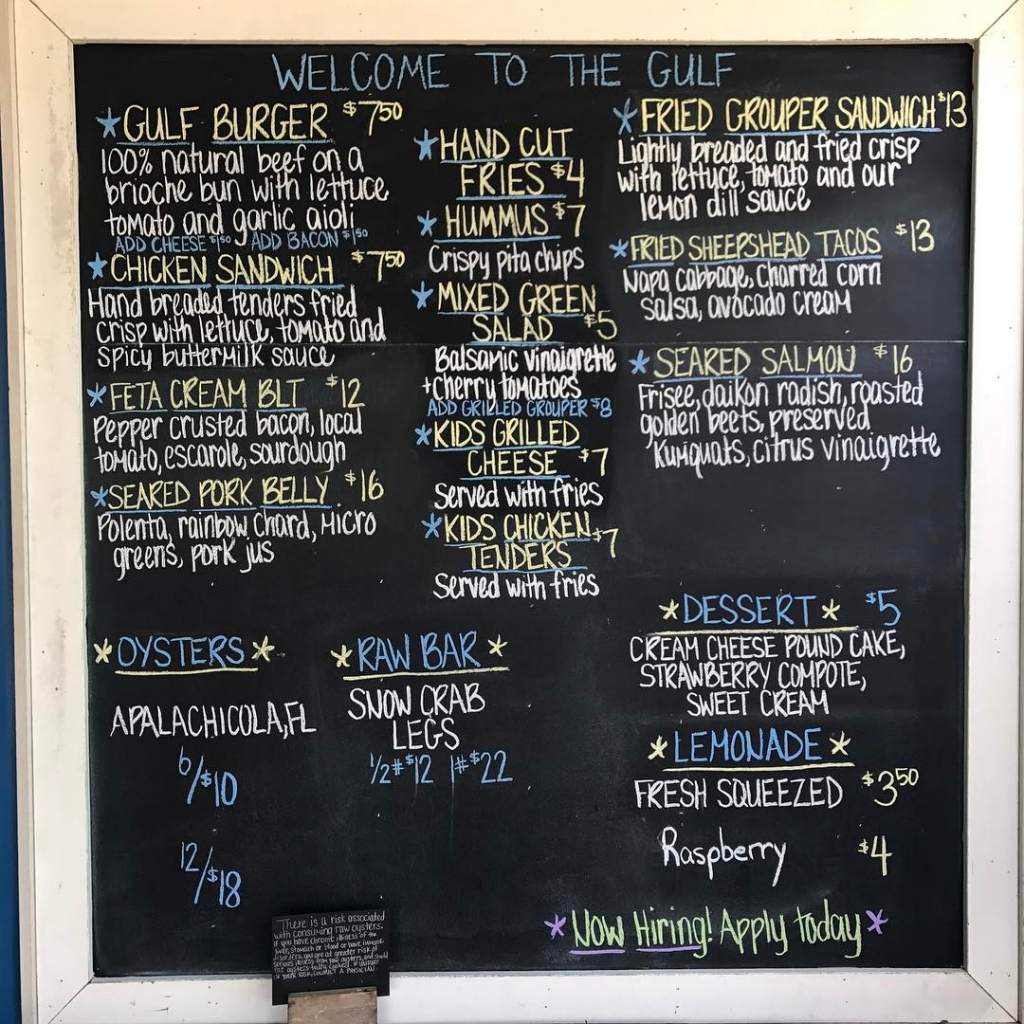 WELCOME TO THE GULF
*GULF BURGER $7.50
100% natural beef on a
brioche bun with lettuce
tomato and garlic aioli
ADD CHEESE $1.50 ADD BACON $1.50
*CHICKEN SANDWICH $7.50
Hand breaded tenders fried
crisp with lettuce, tomato and
spicy buttermilk sauce
*FETA CREAM BLT $12
Pepper crusted bacon, local
tomato, escarole, sourdough
*SEARED PORK BELLY $16
Polenta, rainbow chard, micro
greens, pork jus
*HAND CUT
FRIES $4
*HUMMUS $7
Crispy pita chips
*MIXED GREEN
SALAD $5
Balsamic vinaigrette
+cherry tomatoes
ADD GRILLED GROUPER $8
*KIDS GRILLED
CHEESE $7
Served with fries
*KIDS CHICKEN
TENDERS $7
Served with fries
*FRIED GROUPER SANDWICH $13
Lightly breaded and fried crisp
with lettuce, tomato and our
lemon dill sauce
*FRIED SHEEPSHEAD TACOS $13
Napa cabbage, charred corn
salsa, avocado cream
*SEARED SALMON $16
Frisee, daikon radish, roasted
golden beets, preserved
kumquats, citrus vinaigrette
*OYSTERS*
APALACHICOLA, FL
6/$10
12/$18
*RAW BAR*
SNOW CRAB
LEGS
1/2# $12 1# $22
*DESSERT* $5
CREAM CHEESE POUND CAKE,
STRAWBERRY COMPOTE,
SWEET CREAM
*LEMONADE*
FRESH SQUEEZED $3.50
Raspberry $4
*Now Hiring! Apply today*
There is a risk associated
with consuming raw oysters.
If you have chronic illness of the
liver, stomach or blood or have
disorders, you are at greater risk of
serious illness from raw oysters, and should
eat oysters fully cooked. If unsure
of your risk, consult a physician